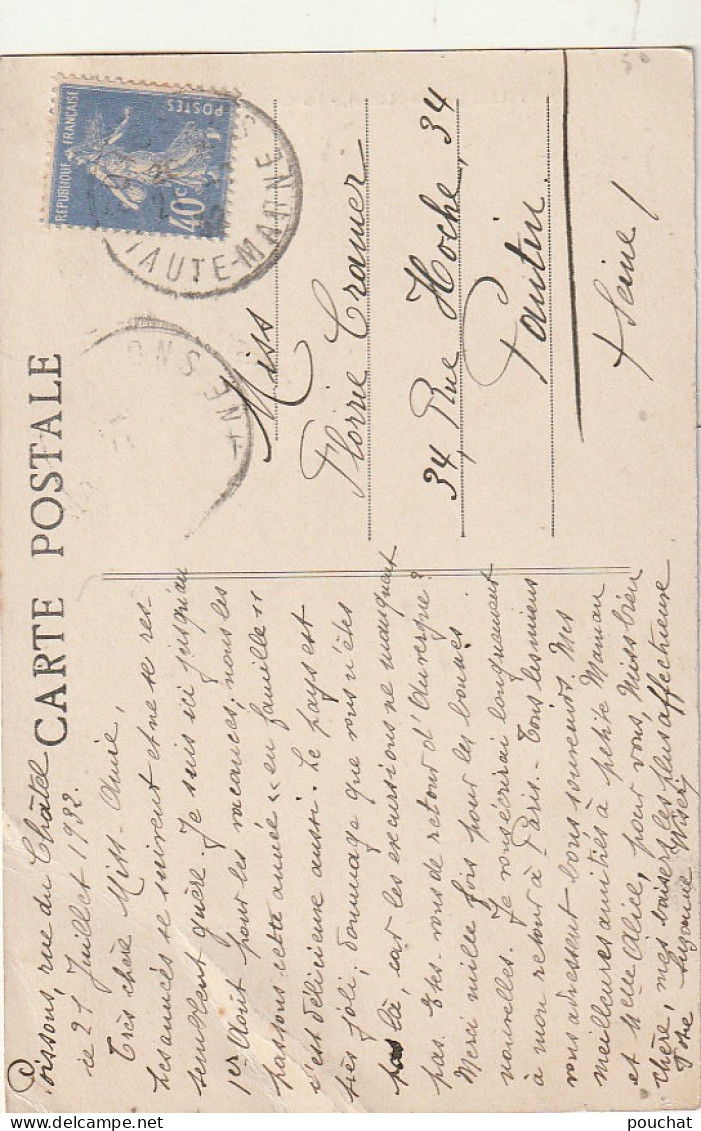 CARTE POSTALE
RÉPUBLIQUE FRANÇAISE
POSTES
40c
HAUTE-MARNE
Miss
Florrie Cramer
34, Rue Hoche, 34
Pantin
(Seine)
Poissons, rue du Châtel
ce 21 Juillet 1932.
Très chère Miss-Amie,
Les années se suivent et ne se res-
semblent guère. Je suis ici jusqu'au
1er Août pour les vacances, nous les
passons cette année « en famille »
c'est délicieux aussi. Le pays est
très joli; dommage que vous n'êtes
pas là, car les excursions ne manquent
pas. Etes-vous de retour d'Auvergne?
Merci mille fois pour les bonnes
nouvelles. Je vous écrirai longuement
à mon retour à Paris. - Tous les miens
vous adressent bons souvenirs. Mes
meilleures amitiés à petite Maman
et Melle Alice, pour vous, Miss bien
chère, mes baisers les plus affectueux
Votre Suzanne
pouchat